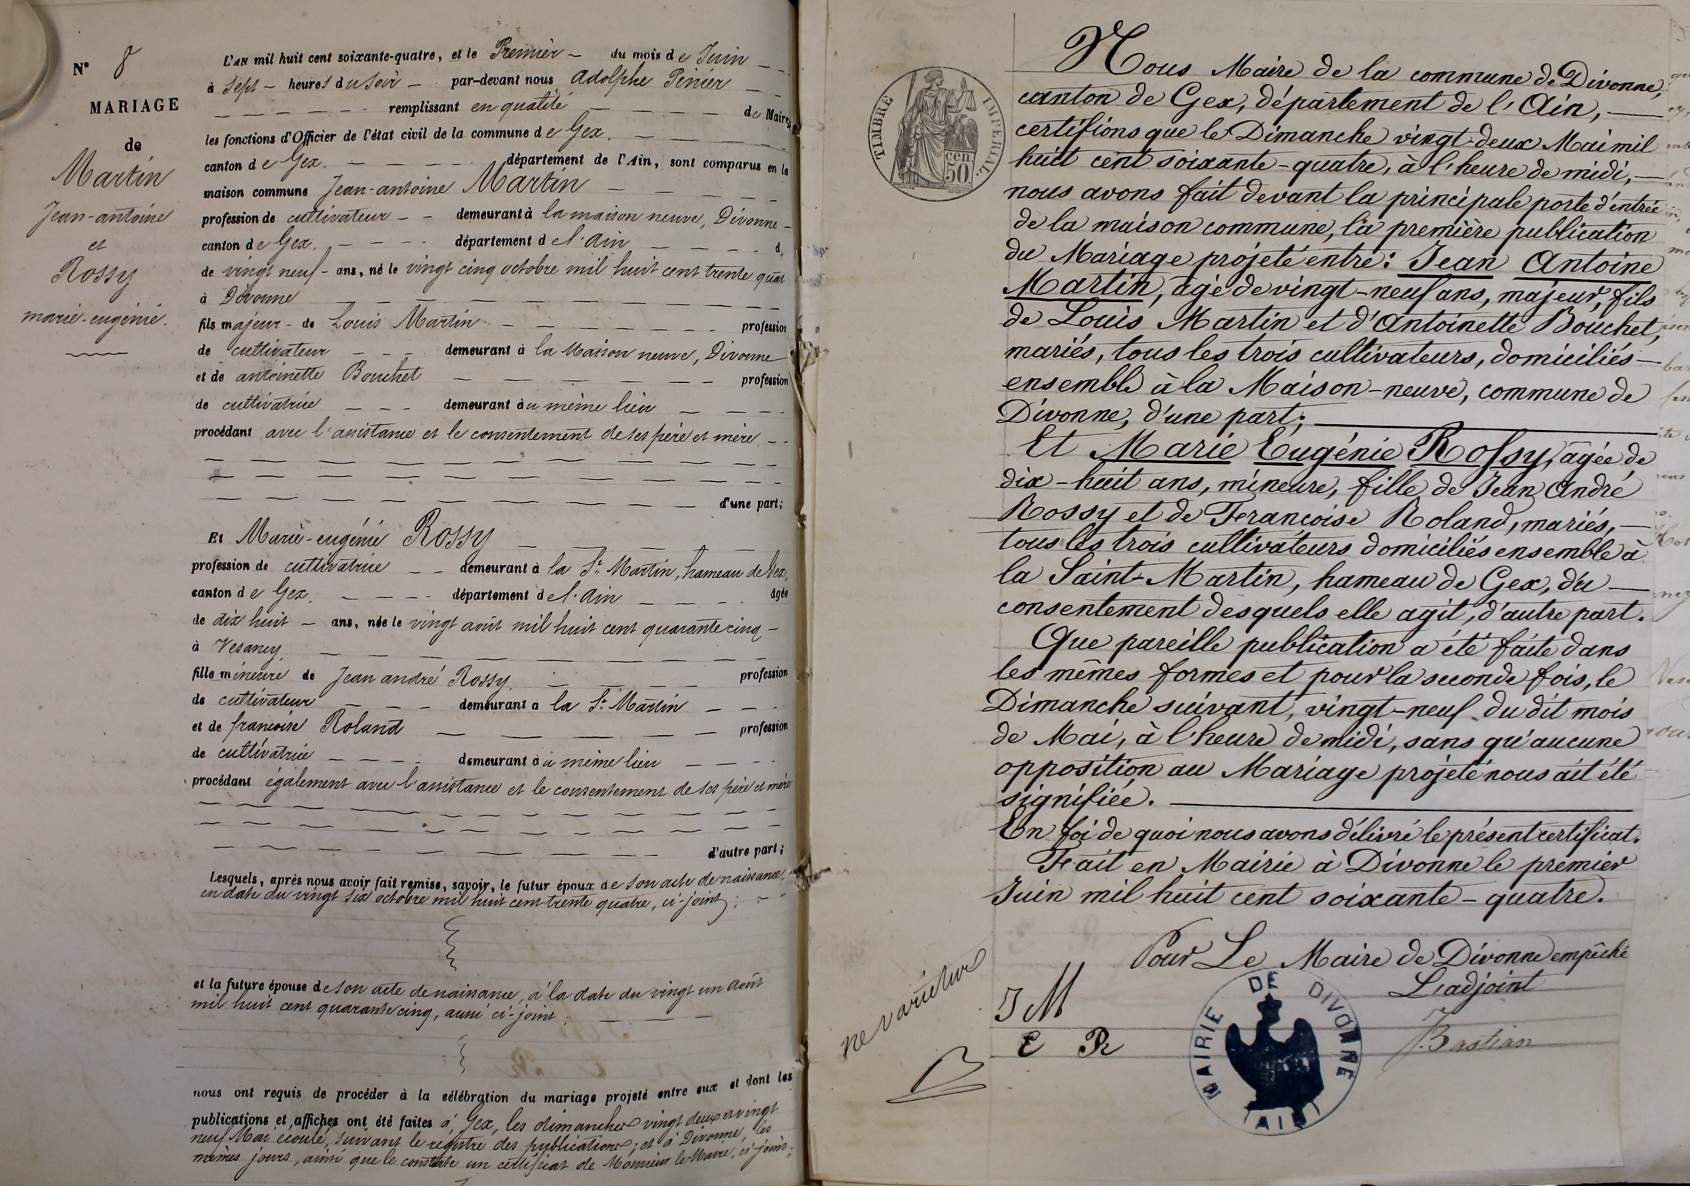 N° 8
MARIAGE
de
Martin
Jean-antoine
et
Rossy
marie-eugénie.
L'AN mil huit cent soixante-quatre, et le Premier du mois de Juin
à Sept heures du Soir par-devant nous Adolphe
remplissant en qualité de Maire
les fonctions d'Officier de l'état civil de la commune de Gex.
canton de Gex. département de l'Ain, sont comparus en la
maison commune Jean-antoine Martin
profession de cultivateur demeurant à la maison neuve, Divonne
canton de Gex. département de l'Ain d.
de vingt neuf ans, né le vingt cinq octobre mil huit cent trente quat
à Divonne
fils majeur de Louis Martin profession
de cultivateur demeurant à la Maison neuve, Divonne
et de antoinette Bouchet profession
de cultivatrice demeurant au même lieu
procédant avec l'assistance et le consentement de ses père et mère
d'une part;
Et Marie-eugénié Rossy
profession de cultivatrice demeurant à la St. Martin, hameau de Gex,
canton de Gex. département de l'Ain âgée
de dix huit ans, née le vingt août mil huit cent quarante cinq
à Vesancy
fille mineure de Jean andré Rossy profession
de cultivateur demeurant à la St. Martin
et de francoise Roland profession
de cultivatrice demeurant au même lieu
procédant également avec l'assistance et le consentement de ses père et mère
d'autre part;
Lesquels, après nous avoir fait remise, savoir, le futur époux de son acte de naissance,
en date du vingt six octobre mil huit cent trente quatre, ci-joint;
et la future épouse de son acte de naissance, à la date du vingt un août
mil huit cent quarante cinq, aussi ci-joint;
nous ont requis de procéder à la célébration du mariage projeté entre eux et dont les
publications et affiches ont été faites à Gex, les dimanches vingt deux et vingt
neuf Mai écoulé, suivant le registre des publications; et à Divonne, les
mêmes jours, ainsi que le constate un certificat de Monsieur le Maire, ci-joint;
TIMBRE IMPERIAL.
50 cen
Nous Maire de la commune de Divonne,
canton de Gex, département de l'Ain,
certifions que le Dimanche vingt-deux Mai mil
huit cent soixante-quatre, à l'heure de midi,
nous avons fait devant la principale porte d'entrée
de la maison commune, la première publication
du Mariage projeté entre: Jean Antoine
Martin, âgé de vingt-neuf ans, majeur, fils
de Louis Martin et d'Antoinette Bouchet,
mariés, tous les trois cultivateurs, domiciliés
ensemble à la Maison-neuve, commune de
Divonne, d'une part;
Et Marie Eugénie Rossy, âgée de
dix-huit ans, mineure, fille de Jean André
Rossy et de Francoise Roland, mariés,
tous les trois cultivateurs domiciliés ensemble à
la Saint-Martin, hameau de Gex, du
consentement desquels elle agit, d'autre part.
Que pareille publication a été faite dans
les mêmes formes et pour la seconde fois, le
Dimanche suivant, vingt-neuf du dit mois
de Mai, à l'heure de midi, sans qu'aucune
opposition au Mariage projeté nous ait été
signifiée.
En foi de quoi nous avons délivré le présent certificat.
Fait en Mairie à Divonne le premier
Juin mil huit cent soixante-quatre.
Pour Le Maire de Divonne empêché
L'adjoint
Bastian
ne varietur
J M
E R
MAIRIE DE DIVONNE
(AIN)